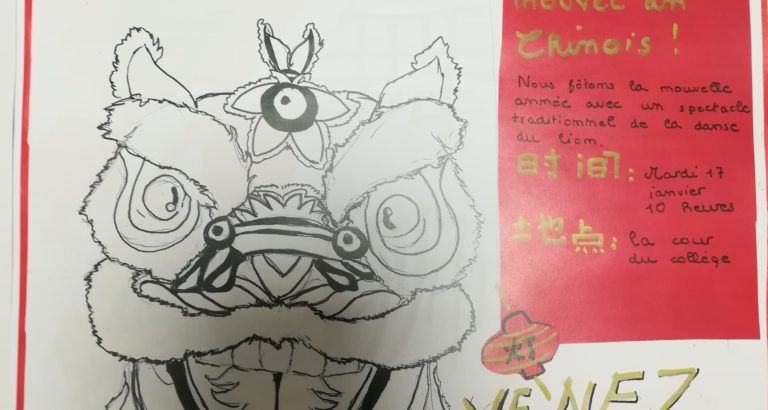 nouvel an
Chinois !
Nous fêtons la nouvelle
année avec un spectacle
traditionnel de la danse
du lion.
时间: Mardi 17
janvier
10 heures
地点: la cour
du collège
VENEZ